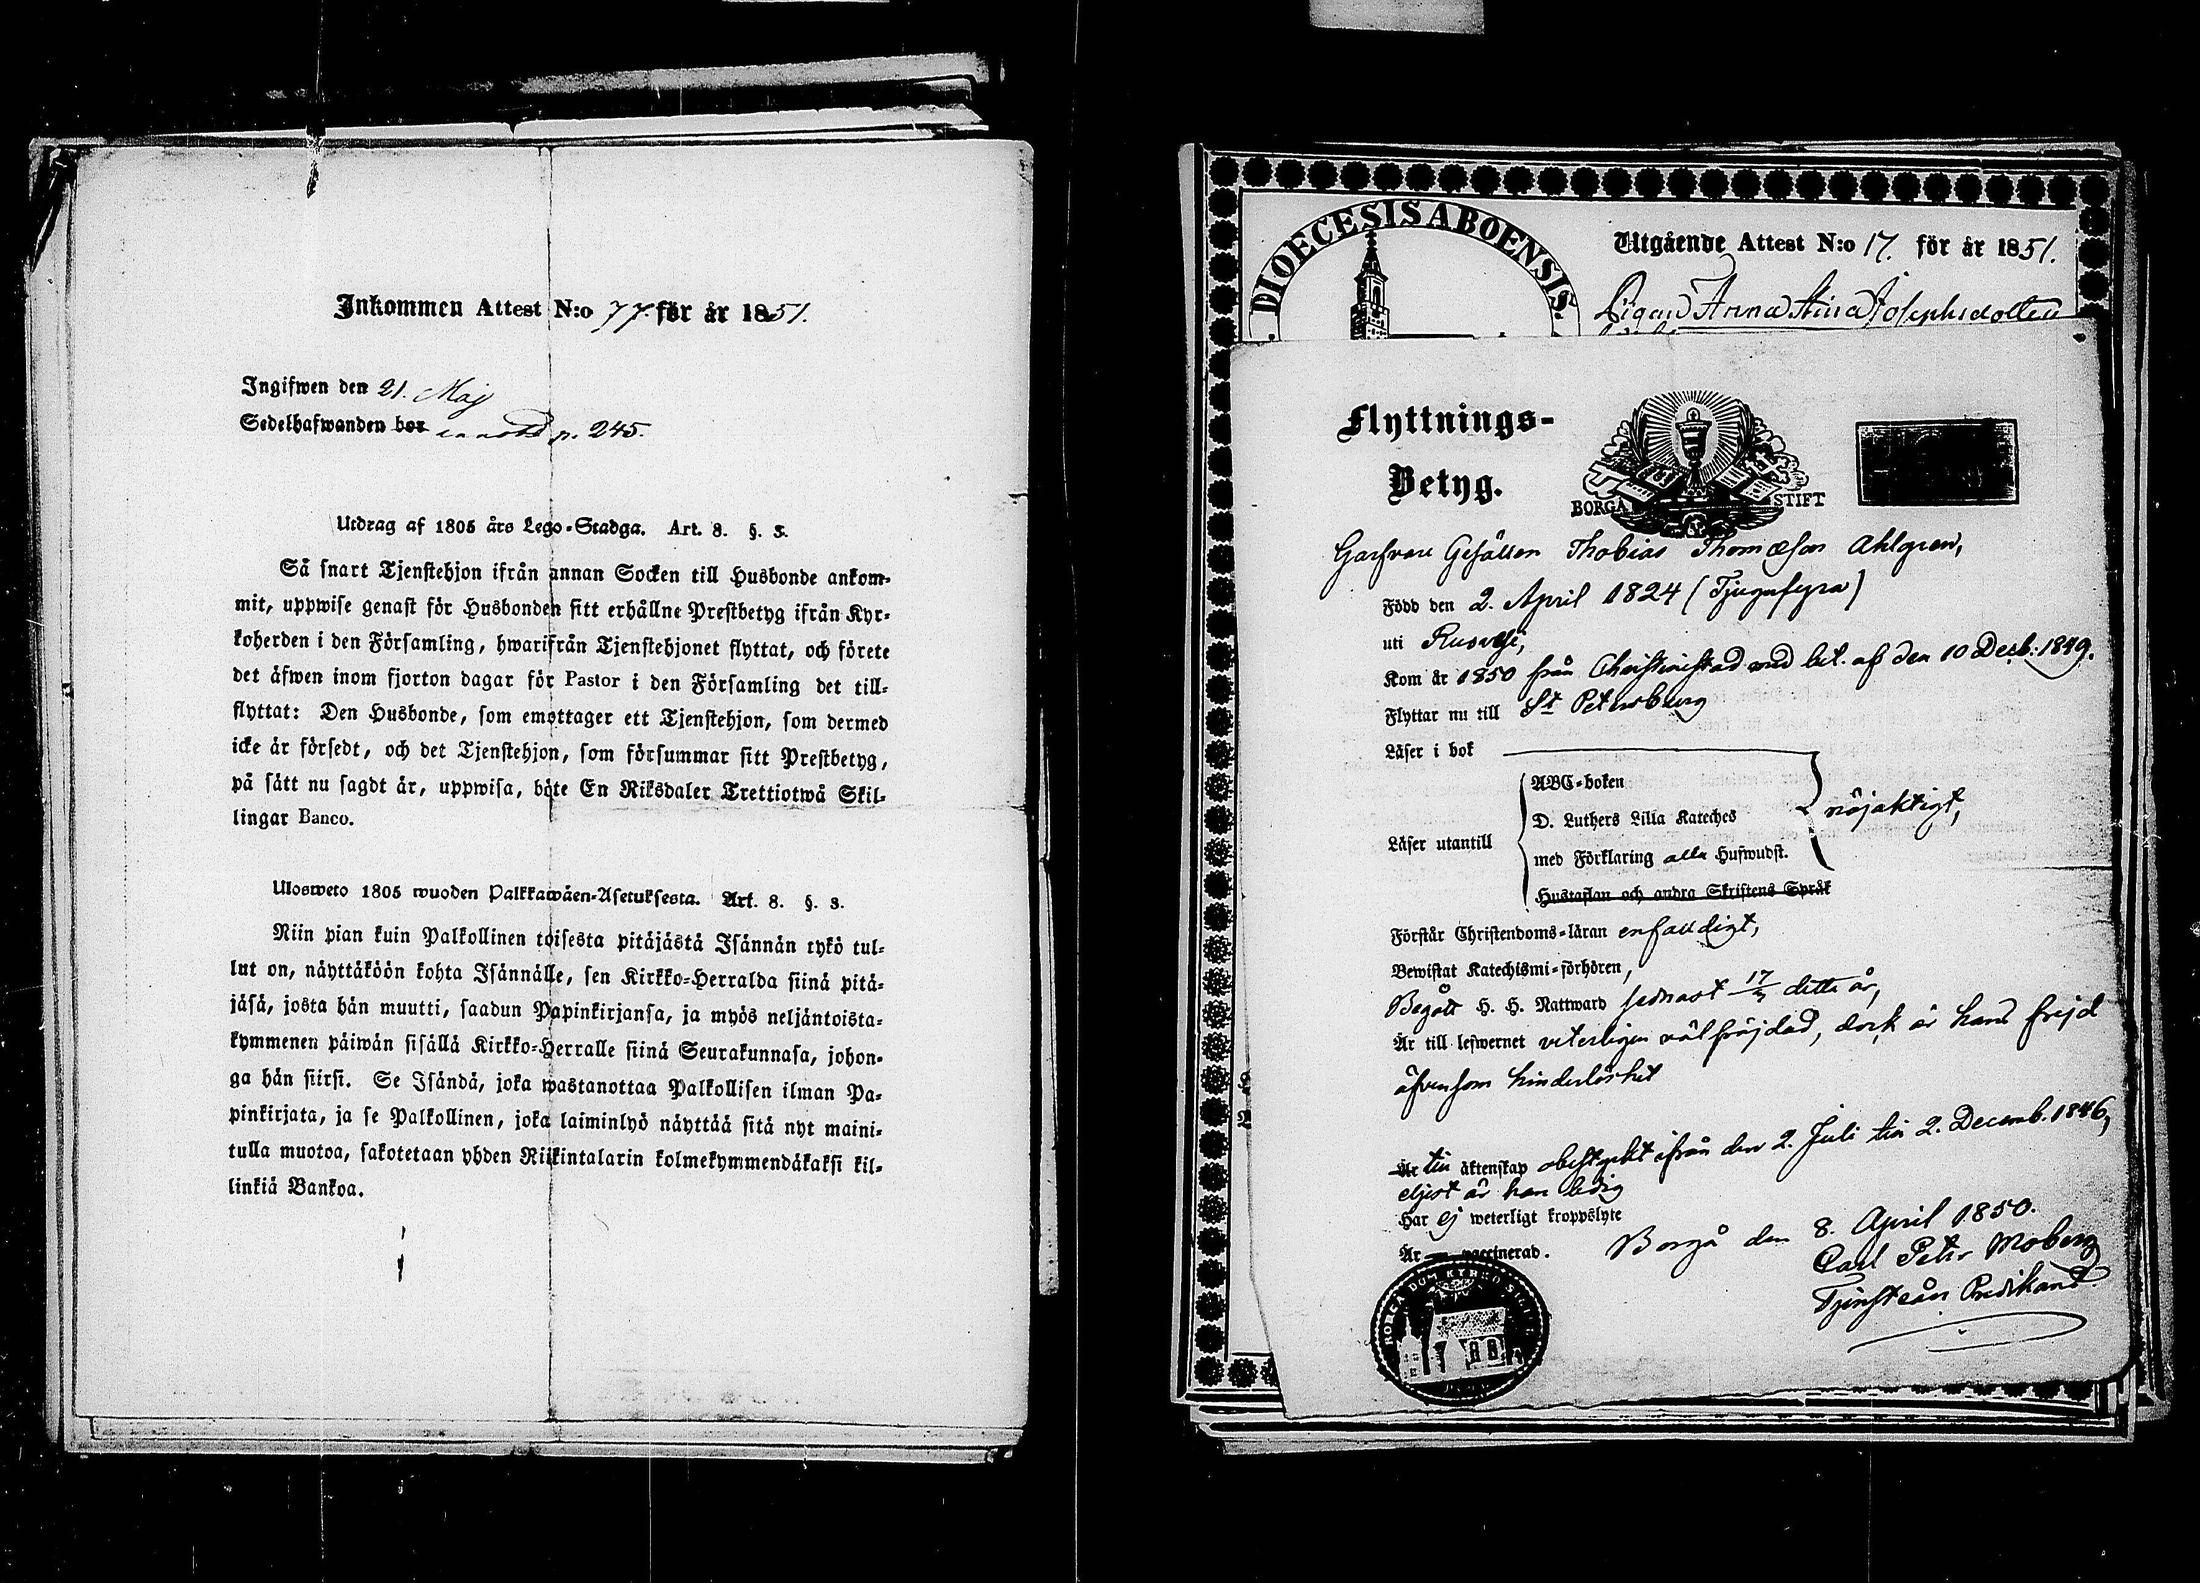 Inkommen Attest N:o 77. för år 1851.
Ingifwen den 21. Maj
Sedelhafwanden bor p. 245.
Utdrag af 1805 års Lego-Stadga. Art. 8. §. 3.
Så snart Tjenstehjon ifrån annan Socken till Husbonde ankom-
mit, uppwise genast för Husbonden sitt erhållne Prestbetyg ifrån Kyr-
koherden i den Församling, hwarifrån Tjenstehjonet flyttat, och förete
det äfwen inom fjorton dagar för Pastor i den Församling det till-
flyttat: Den Husbonde, som emottager ett Tjenstehjon, som dermed
icke är försedt, och det Tjenstehjon, som försummar sitt Prestbetyg,
på sätt nu sagdt är, uppwisa, böte En Riksdaler Trettiotwå Skil-
lingar Banco.
Ulosweto 1805 wuoden Palkkawäen-Asetuksesta. Art. 8. §. 3.
Niin pian kuin Palkollinen toisesta pitäjästä Isännän tykö tul-
lut on, näyttäköön kohta Isännälle, sen Kirkko-Herralda siinä pitä-
jäsä, josta hän muutti, saadun Papinkirjansa, ja myös neljäntoista-
kymmenen päiwän sisällä Kirkko-Herralle siinä Seurakunnasa, johon-
ga hän siirsi. Se Isändä, joka wastanottaa Palkollisen ilman Pa-
pinkirjata, ja se Palkollinen, joka laiminlyö näyttää sitä nyt maini-
tulla muotoa, sakotetaan yhden Riikintalarin kolmekymmendäkaksi kil-
linkiä Bankoa.
DIOECESIS ABOENSIS.
Utgående Attest N:o 17. för år 1851.
Pigan Anna Stina Josephsdotter
Flyttnings-
Betyg.
BORGÅ STIFT
Garfvare Gesällen Thobias Thomæson Ahlgren,
Född den 2. April 1824 (Tjugufyra)
uti Ruovesi,
Kom år 1850 från Christinestad med bet. af den 10 Decb: 1849.
Flyttar nu till St Petersburg
Läser i bok
ABC-boken
D. Luthers Lilla Kateches
Läser utantill
med Förklaring alla Hufwudst.
nöjaktigt,
Hustaflan och andra Skriftens Språk
Förstår Christendoms-läran enfaldigt,
Bewistat Katechismi-förhören,
Begått H. H. Nattward sednast 17/3 detta år,
Är till lefwernet veterligen välfräjdad, dock är hans frejd
äfvensom hinderlöshet
Är till äktenskap obestyrkt ifrån den 2. Juli till 2. Decemb. 1846,
eljest är han ledig
Har ej weterligt kroppslyte
Är vaccinerad.
Borgå den 8. April 1850.
Carl Peter Moberg
Tjenst. Predikant.
BORGÅ DOM KYRKO SIGILL